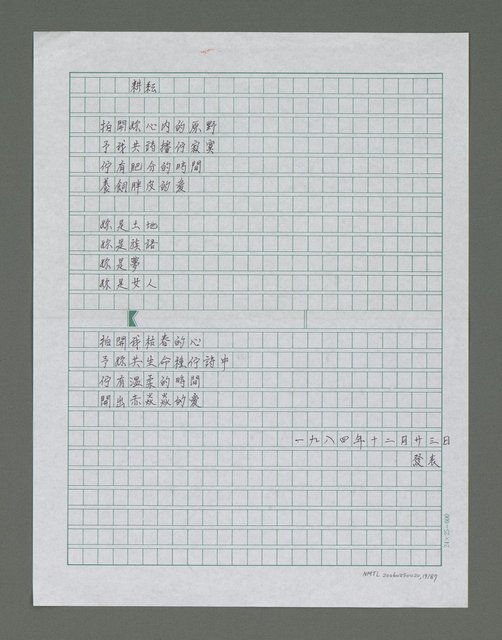 耕耘
拍開妳心內的原野
予我共詩播佇寂寞
佇有肥分的時間
養飼胖皮的愛
妳是土地
妳是族諸
妳是夢
妳是女人
拍開我枯香的心
予妳共生命種佇詩中
佇有溫柔的時間
開出赤焱焱的愛
一九八四年十二月廿三日
發表
24×25=600